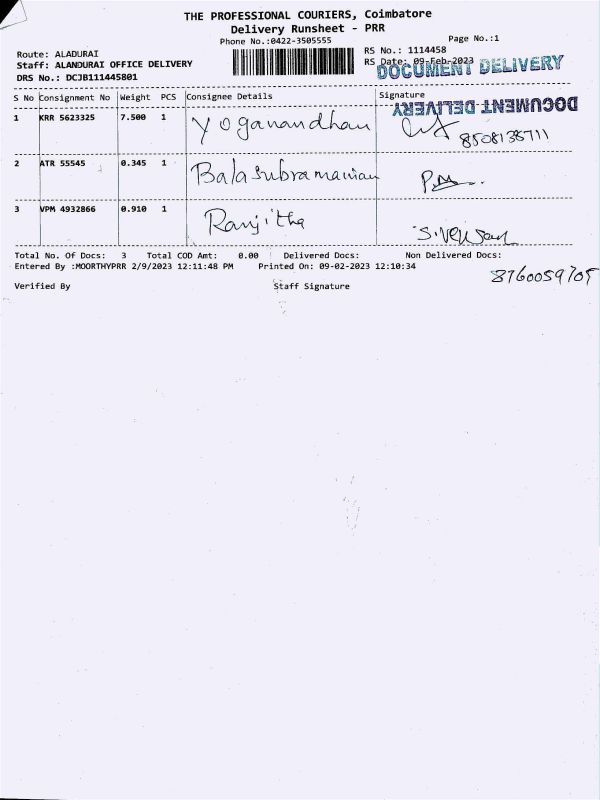 THE PROFESSIONAL COURIERS, Coimbatore
Delivery Runsheet - PRR
Phone No.:0422-3505555
Page No.:1
Route: ALADURAI
RS No.: 1114458
Staff: ALANDURAI OFFICE DELIVERY
RS Date: 09-Feb-2023
DOCUMENT DELIVERY
DRS No.: DCJB111445801
S No Consignment No Weight PCS Consignee Details Signature
DOCUMENT DELIVERY
1 KRR 5623325 7.500 1 Yoganandhan
8508138711
2 ATR 55545 0.345 1 Balasubramanian
3 VPM 4932866 0.910 1 Ranjitha
Total No. Of Docs: 3 Total COD Amt: 0.00 Delivered Docs: Non Delivered Docs:
Entered By :MOORTHYPRR 2/9/2023 12:11:48 PM Printed On: 09-02-2023 12:10:34
8760059705
Verified By Staff Signature